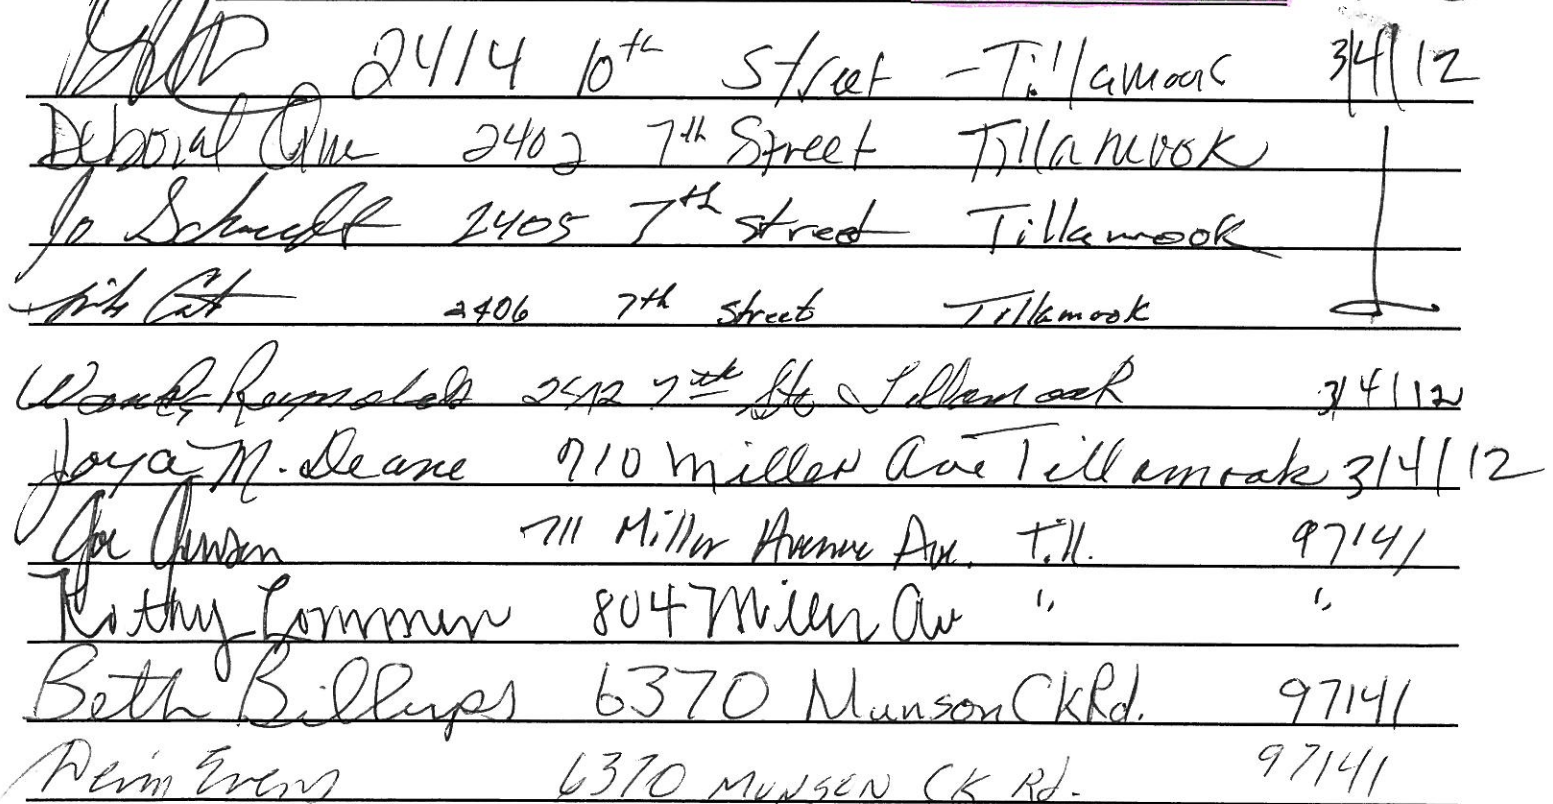 2414 10th Street - Tillamook 3/4/12
Deborah 2402 7th Street Tillamook
Jo Schmidt 2405 7th street Tillamook
2406 7th street Tillamook
Reynolds 7th St Tillamook 3/4/12
Joya M. Deane 710 Miller Ave Tillamook 3/4/12
Joe Jensen 711 Miller Avenue Ave. Till. 97141
Kathy Lommen 804 Miller Av " "
Beth Billups 6370 Munson Ck Rd. 97141
Evens 6370 MUNSEN CK Rd. 97141